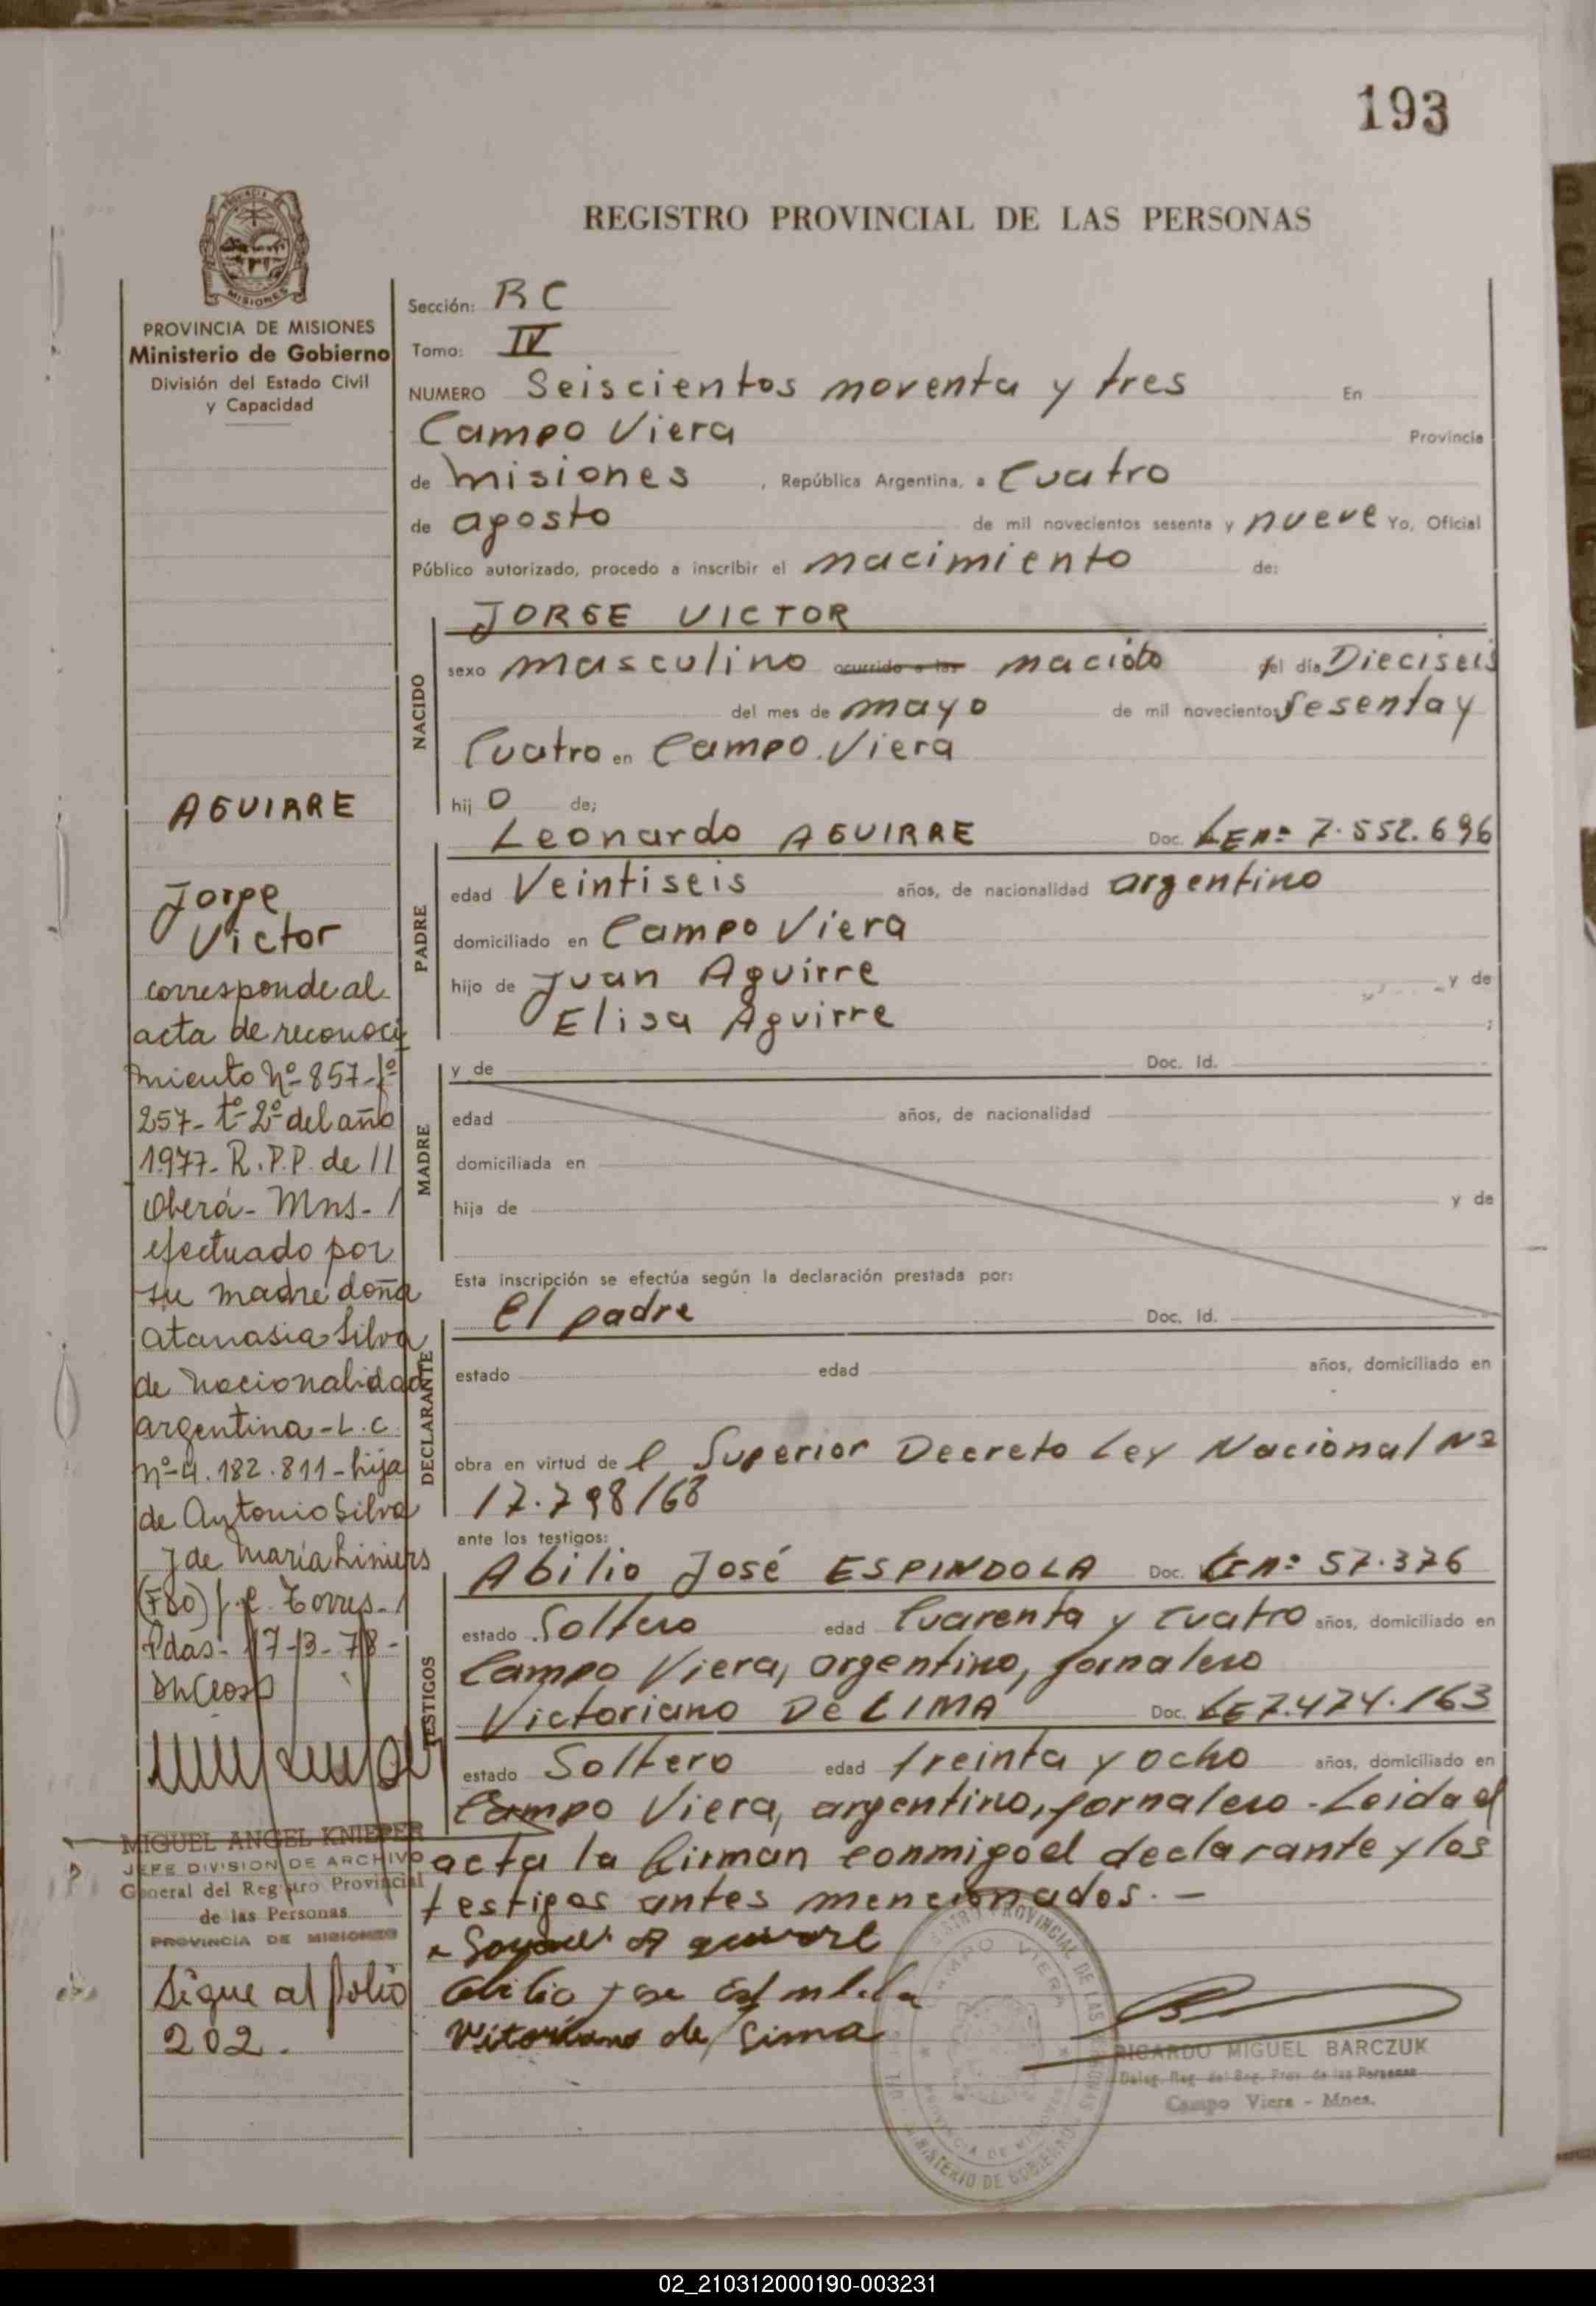 193
REGISTRO PROVINCIAL DE LAS PERSONAS
PROVINCIA DE MISIONES
Ministerio de Gobierno
División del Estado Civil
y Capacidad
AGUIRRE
Jorge
Victor
corresponde al
acta de reconoci
miento Nº 857-fº
257-tº 2º del año
1977- R.P.P. de //
Oberá- Mns- /
efectuado por
su madre doña
Atanasia Silva
de nacionalidad
argentina-L.C.
nº 4.182.811-hija
de Antonio Silva
y de María Liniers
(Fdo) Torres- /
Pdas- 17-3-78-
MIGUEL ANGEL KNIEPER
JEFE DIVISION DE ARCHIVO
General del Registro Provincial
de las Personas
PROVINCIA DE MISIONES
Sigue al folio
202.
Sección: RC
Tomo: IV
NUMERO Seiscientos noventa y tres En
Campo Viera Provincia
de misiones , República Argentina, a Cuatro
de agosto de mil novecientos sesenta y nueve Yo, Oficial
Público autorizado, procedo a inscribir el nacimiento de:
NACIDO
JORGE VICTOR
sexo masculino ocurrido a las nacido del día Dieciseis
del mes de mayo de mil novecientos Sesenta y
Cuatro en Campo Viera
hij o de;
PADRE
Leonardo AGUIRRE Doc. LEnº 7.552.696
edad Veintiseis años, de nacionalidad argentino
domiciliado en Campo Viera
hijo de Juan Aguirre y de
Elisa Aguirre ;
MADRE
y de Doc. Id.
edad años, de nacionalidad
domiciliada en
hija de y de
Esta inscripción se efectúa según la declaración prestada por:
DECLARANTE
El padre Doc. Id.
estado edad años, domiciliado en
obra en virtud de l Superior Decreto Ley Nacional Nº
17.798/68
ante los testigos:
TESTIGOS
Abilio José ESPINDOLA Doc. LEnº 57.376
estado Soltero edad Cuarenta y cuatro años, domiciliado en
Campo Viera, argentino, jornalero
Victoriano De LIMA Doc. LE 7.474.163
estado Soltero edad treinta y ocho años, domiciliado en
Campo Viera, argentino, jornalero-Leida el
acta la firman conmigo el declarante y los
testigos antes mencionados.-
Vitoriano de Lima
REGISTRO PROVINCIAL DE LAS PERSONAS
CAMPO VIERA
PROVINCIA DE MISIONES
MINISTERIO DE GOBIERNO
RICARDO MIGUEL BARCZUK
Deleg. Reg. del Reg. Prov. de las Personas
Campo Viera - Mnes.
02_210312000190-003231